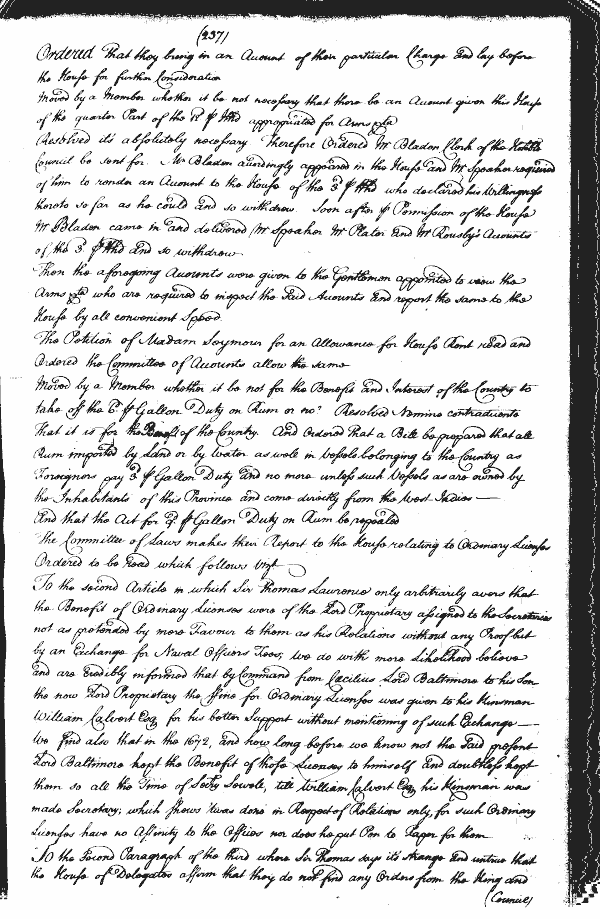 (237)
Ordered That they bring in an Account of their particular Charge and lay before
the House for further Consideration
Moved by a Member whether it be not necessary that there be an Account given this House
of the quarter Part of the appropriated for Arms
Resolved it's absolutely necessary Therefore Ordered Mr Bladen Clerk of the
Council be sent for. Mr Bladen accordingly appeared in the House and Mr Speaker required
of him to render an Account to the House of the 3d who declared his Willingness
thereto so far as he could and so withdrew. Soon after Permission of the House
Mr Bladen came in and delivered Mr Speaker Mr Plater and Mr Rousby's Accounts
of the 3d and so withdrew
Then the aforegoing Accounts were given to the Gentlemen appointed to view the
Arms who are required to inspect the said Accounts and report the same to the
House by all convenient Speed.
The Petition of Madam Seymour for an Allowance for House Rent read and
Ordered the Committee of Accounts allow the same
Moved by a Member whether it be not for the Benefit and Interest of the Country to
take off the 6d Gallon Duty on Rum or no? Resolved Nemine contradicente
That it is for the Benefit of the Country. And Ordered that a Bill be prepared that all
Rum imported by Land or by Water as well in Vessels belonging to the Country as
Foreigners pay 3d Gallon Duty and no more unless such Vessels as are owned by
the Inhabitants of this Province and come directly from the West Indies —
And that the Act for Gallon Duty on Rum be repealed
The Committee of Laws makes their Report to the House relating to Ordinary Licenses
Ordered to be read which follows Vizt
To the second Article in which Sir Thomas Laurence only arbitrarily avers that
the Benefit of Ordinary Licenses were of the Lord Proprietary assigned to the Secretaries
not as pretended by meer Favour to them as his Relations without any Proof but
by an Exchange for Naval Officers Fees; we do with more likelihood believe
and are credibly informed that by Command from Cecilius Lord Baltimore to his Son
the now Lord Proprietary the fine for Ordinary Licenses was given to his Kinsman
William Calvert Esq for his better Support without mentioning of such Exchange —
We find also that in the 1672, and how long before we know not the said present
Lord Baltimore kept the Benefit of those Licenses to himself and doubtless kept
them so all the Time of Secry Sewell, till William Calvert Esq his Kinsman was
made Secretary; which shews 'twas done in Respect of Relations only, for such Ordinary
Licenses have no Affinity to the Offices nor does he put Pen to Paper for them
To the second Paragraph of the third where Sir Thomas says it's strange and untrue that
the House of Delegates affirm that they do not find any Orders from the King and
(Council)